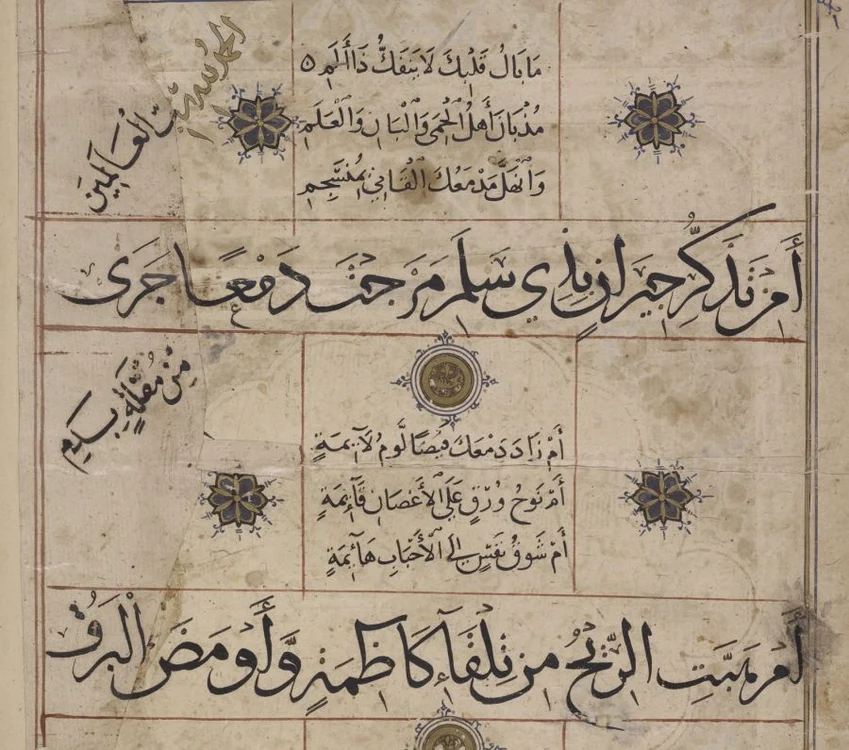 الحمد لله رب العالمين
مَا بَالُ قَلْبِكَ لَا يَنْفَكُّ ذَا أَلَمِ
مُذْ بَانَ أَهْلُ الْحِمَى وَالْبَانِ وَالْعَلَمِ
وَانْهَلَّ مَدْمَعُكَ الْقَانِي بِمُنْسَجِمِ
أَمِنْ تَذَكُّرِ جِيرَانٍ بِذِي سَلَمٍ مَزَجْتَ دَمْعًا جَرَى
مِنْ مُقْلَةٍ بِدَمِ
أَمْ زَادَ دَمْعَكَ فَيْضًا لَوْمُ لَآئِمَةٍ
أَمْ نَوْحُ وُرْقٍ عَلَى الْأَغْصَانِ قَآئِمَةٍ
أَمْ شَوْقُ نَفْسٍ إِلَى الْأَحْبَابِ هَآئِمَةٍ
أَمْ هَبَّتِ الرِّيْحُ مِنْ تِلْقَآءِ كَاظِمَةٍ وَّأَوْمَضَ الْبَرْقُ